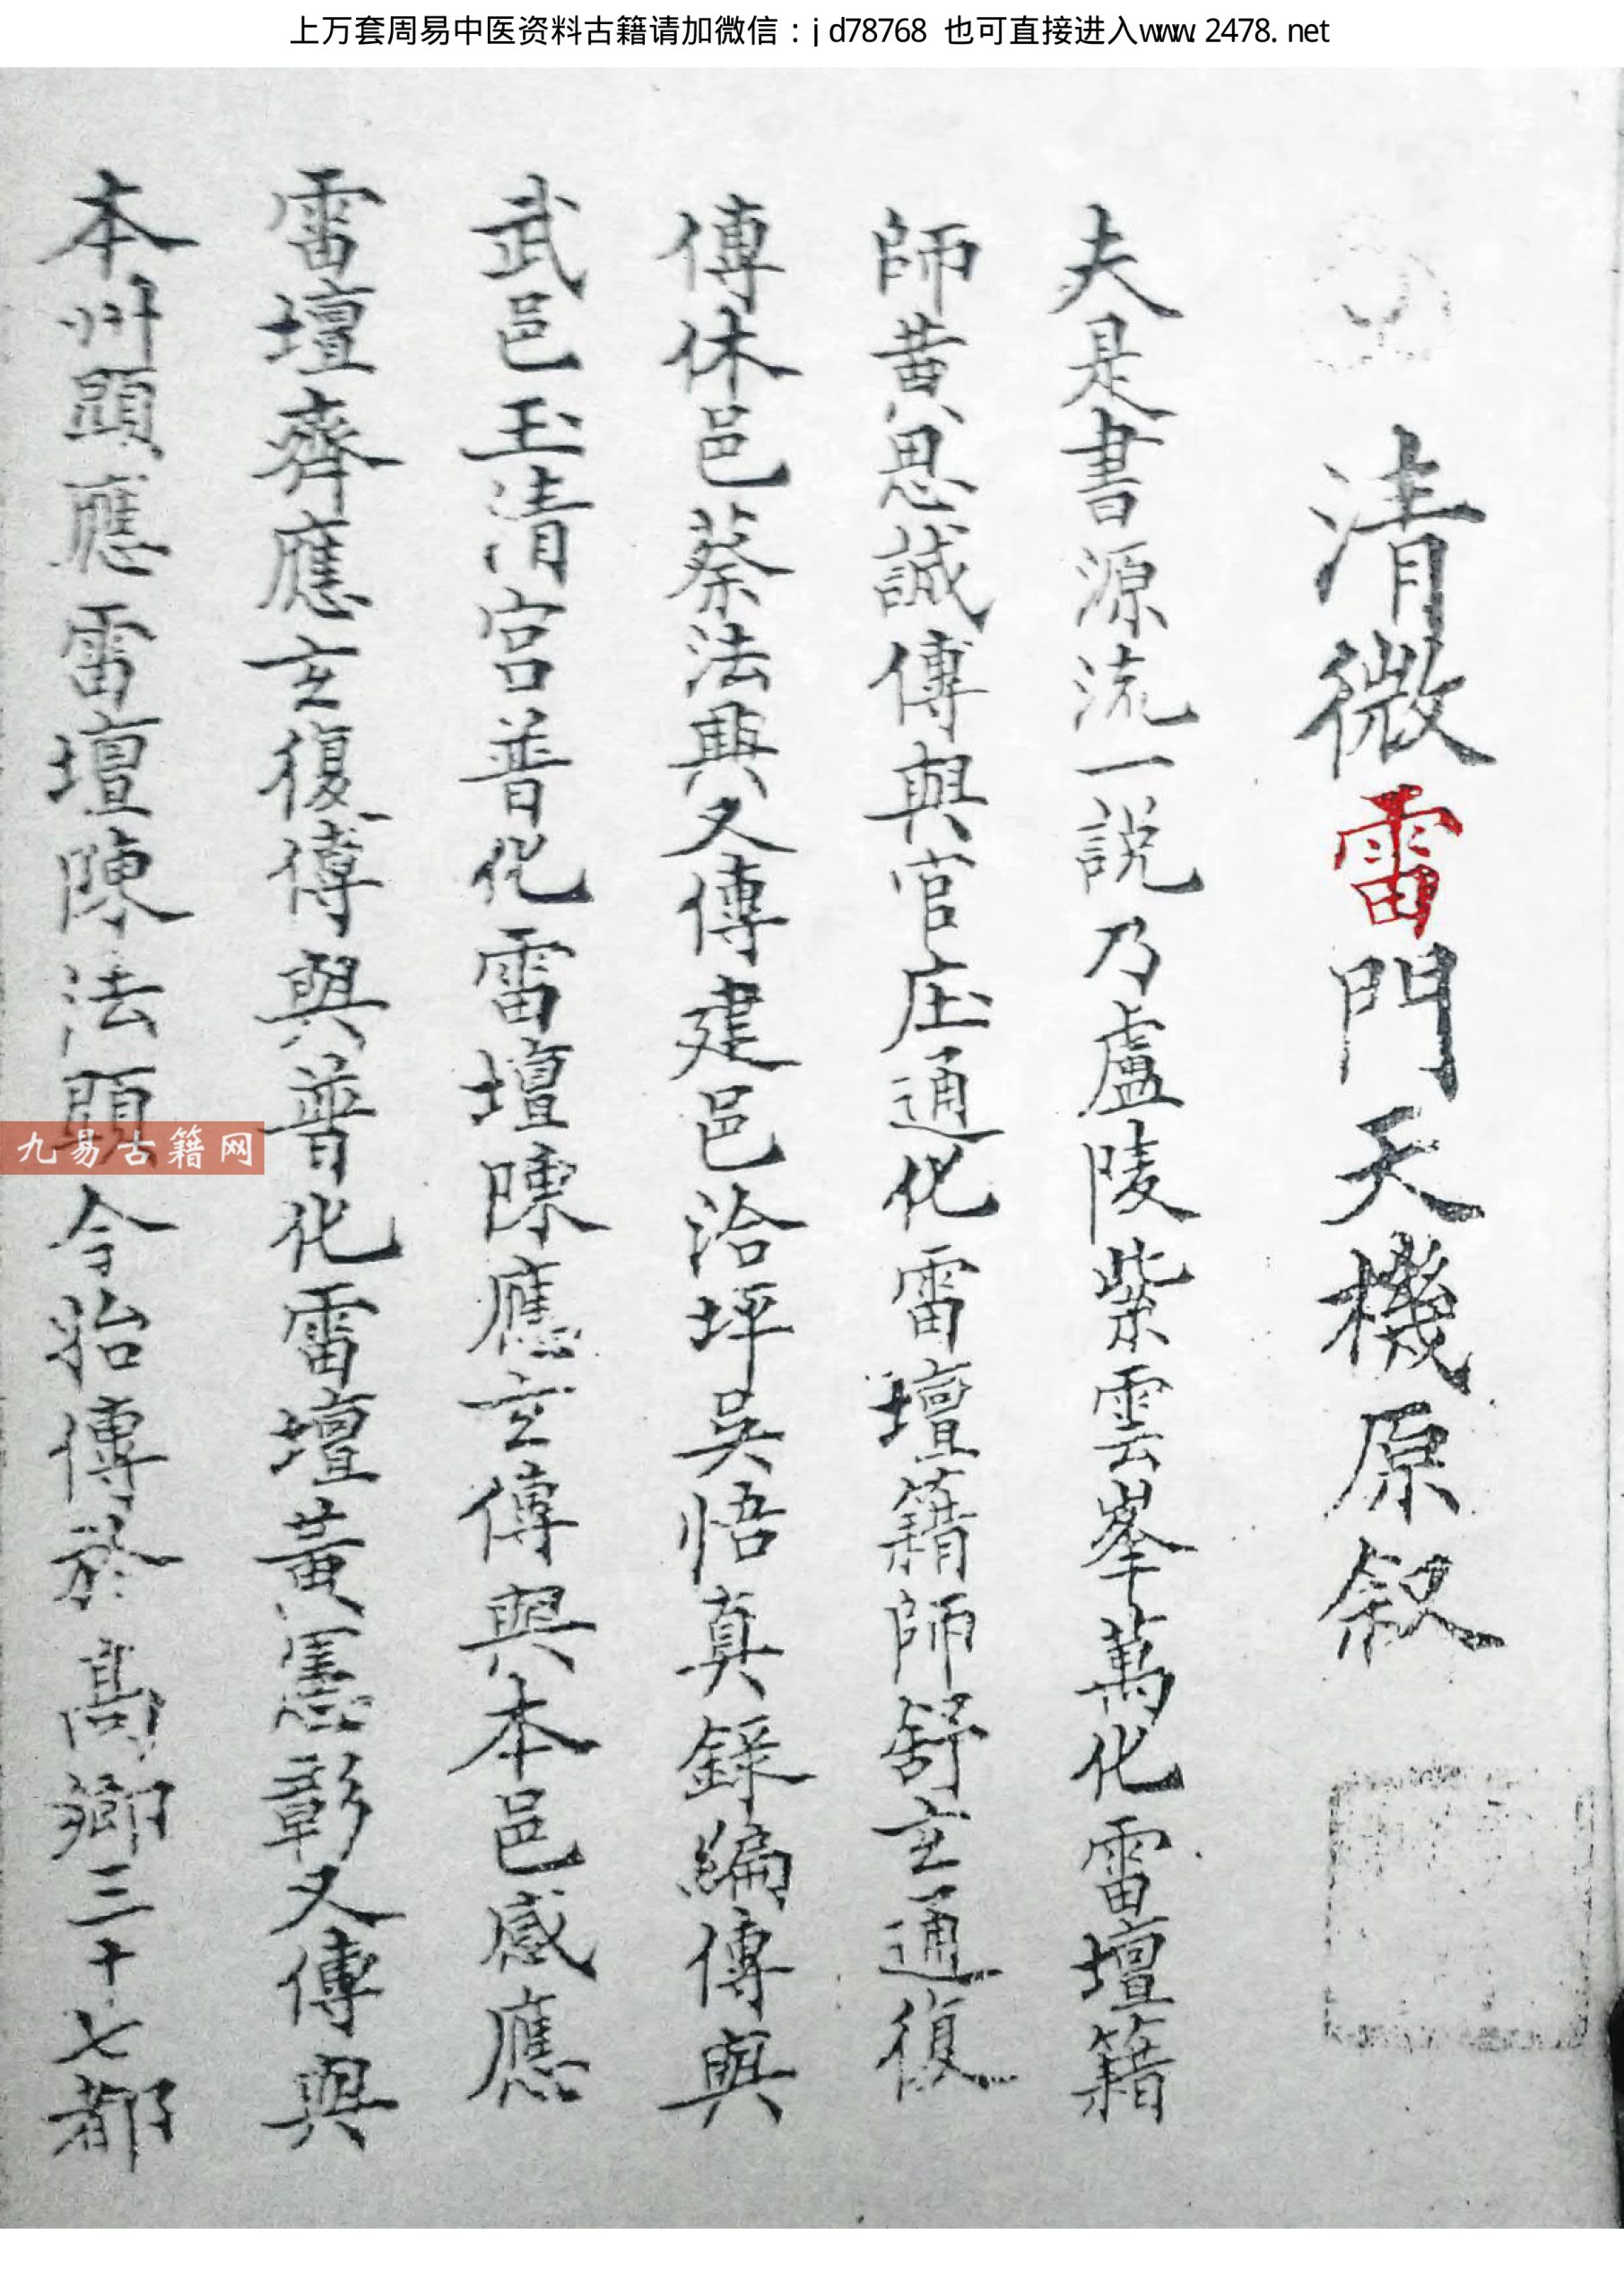 上万套周易中医资料古籍请加微信：jd78768 也可直接进入www.2478.net
清微雷門天機原叙
夫是書源流一説乃盧陵紫雲峯萬化雷壇籍
師黄思誠傳與官庄通化雷壇籍師舒玄通復
傳休邑蔡法興又傳建邑洽坪吳悟真錄編傳與
武邑玉清宮普化雷壇陳應玄傳與本邑感應
雷壇齊應玄復傳與普化雷壇黃憲彰又傳與
本州顕應雷壇陳法顕今貽傳於高鄉三十七都
九易古籍网